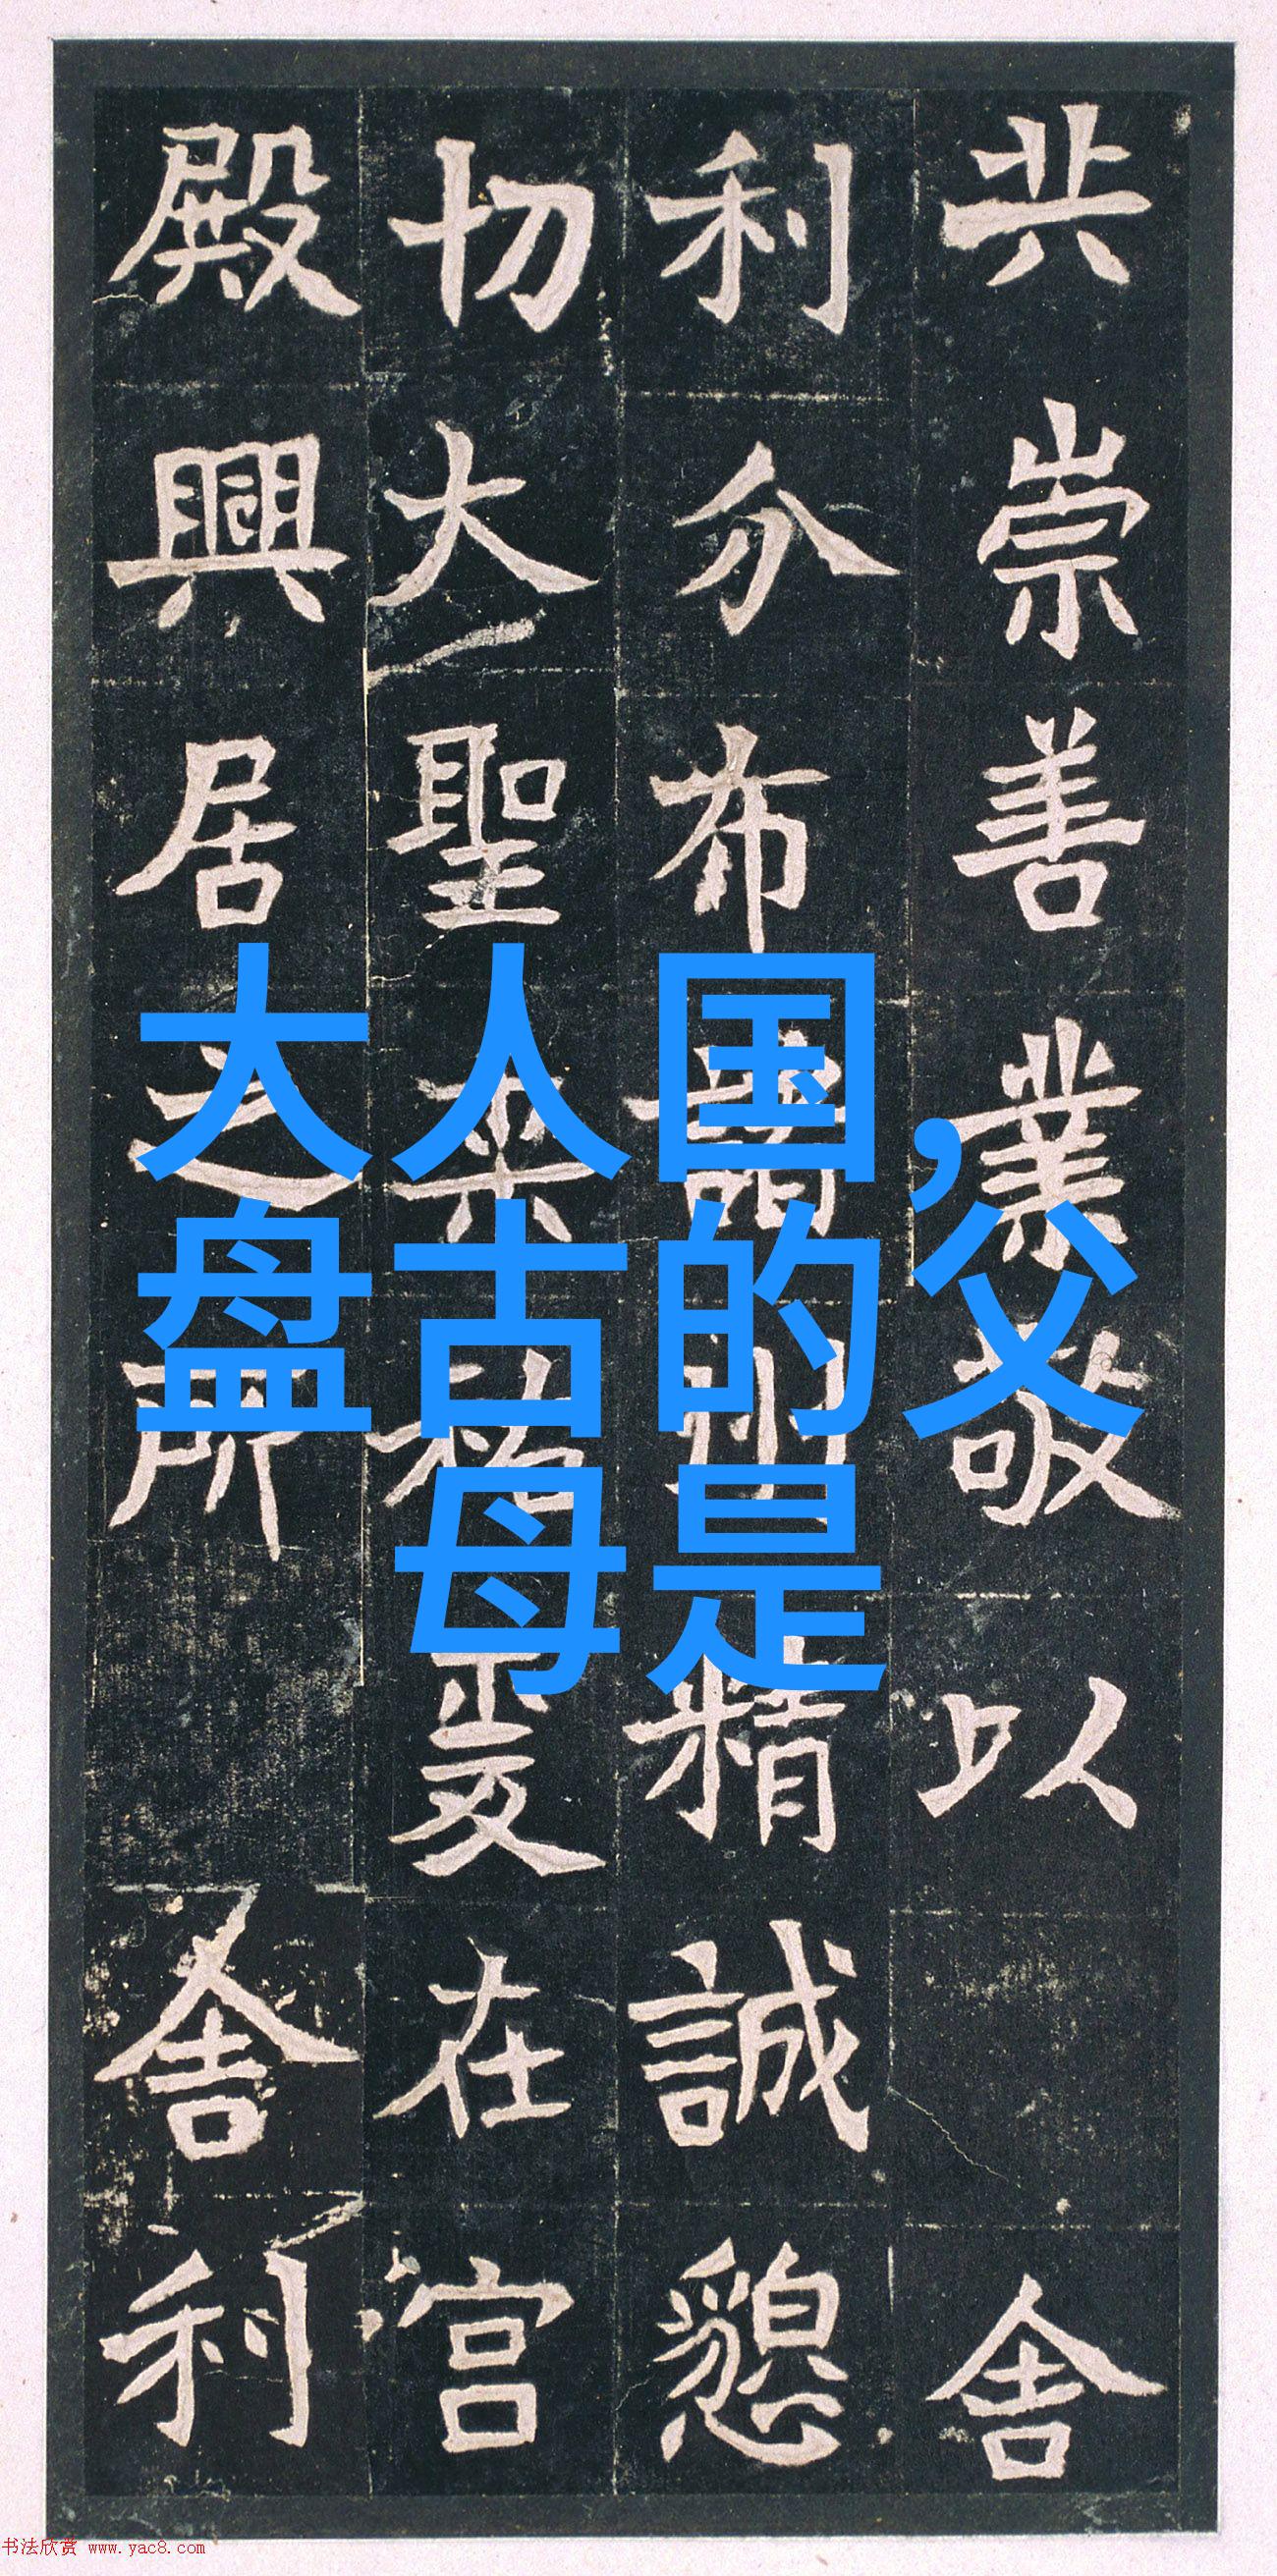 共崇善業敬以舍
利分布諸州精誠懇
切大聖垂祐爰在宫
殿興居之所舍利
大人国,
盘古的父
母是
书法欣赏 www.yac8.com